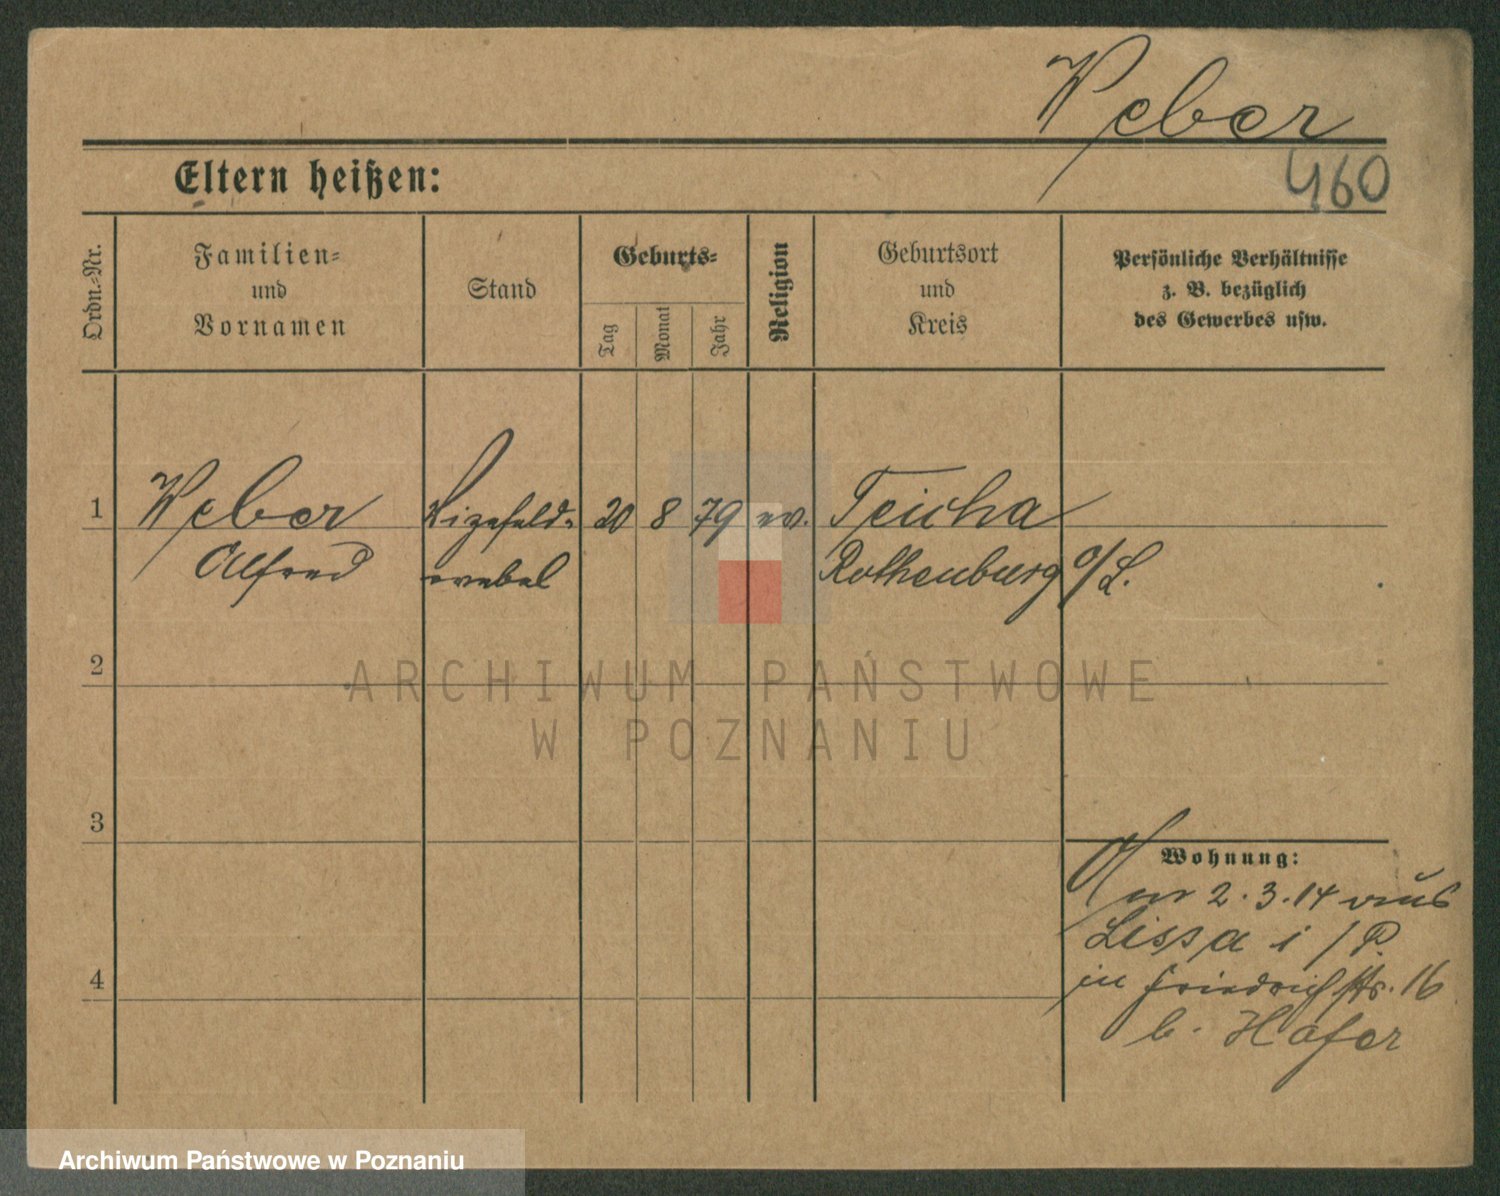 Weber
460
Eltern heißen:
Ordn.-Nr.
Familien-
und
Vornamen
Stand
Geburts-
Tag
Monat
Jahr
Religion
Geburtsort
und
Kreis
Persönliche Verhältnisse
z. B. bezüglich
des Gewerbes usw.
1
Weber
Alfred
Vizefeld-
webel
20
8
79
ev.
Teicha
Rothenburg o/L.
2
ARCHIWUM PAŃSTWOWE
W POZNANIU
3
Wohnung:
am 2.3.14 aus
Lissa i/P.
4
in Friedrichstr. 16
b. Hafer
Archiwum Państwowe w Poznaniu